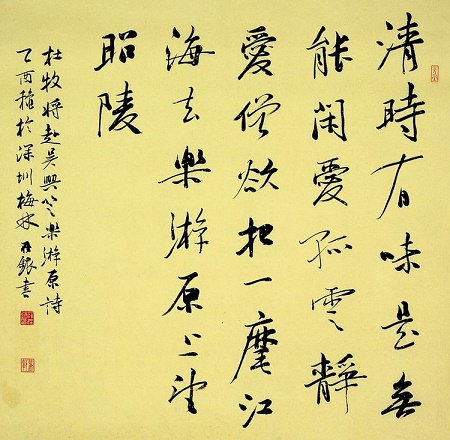 清時有味是無
能閑愛孤雲靜
愛僧欲把一麾江
海去樂游原上望
昭陵
杜牧將赴吳興登樂游原詩
乙酉穐於深圳梅林銀書